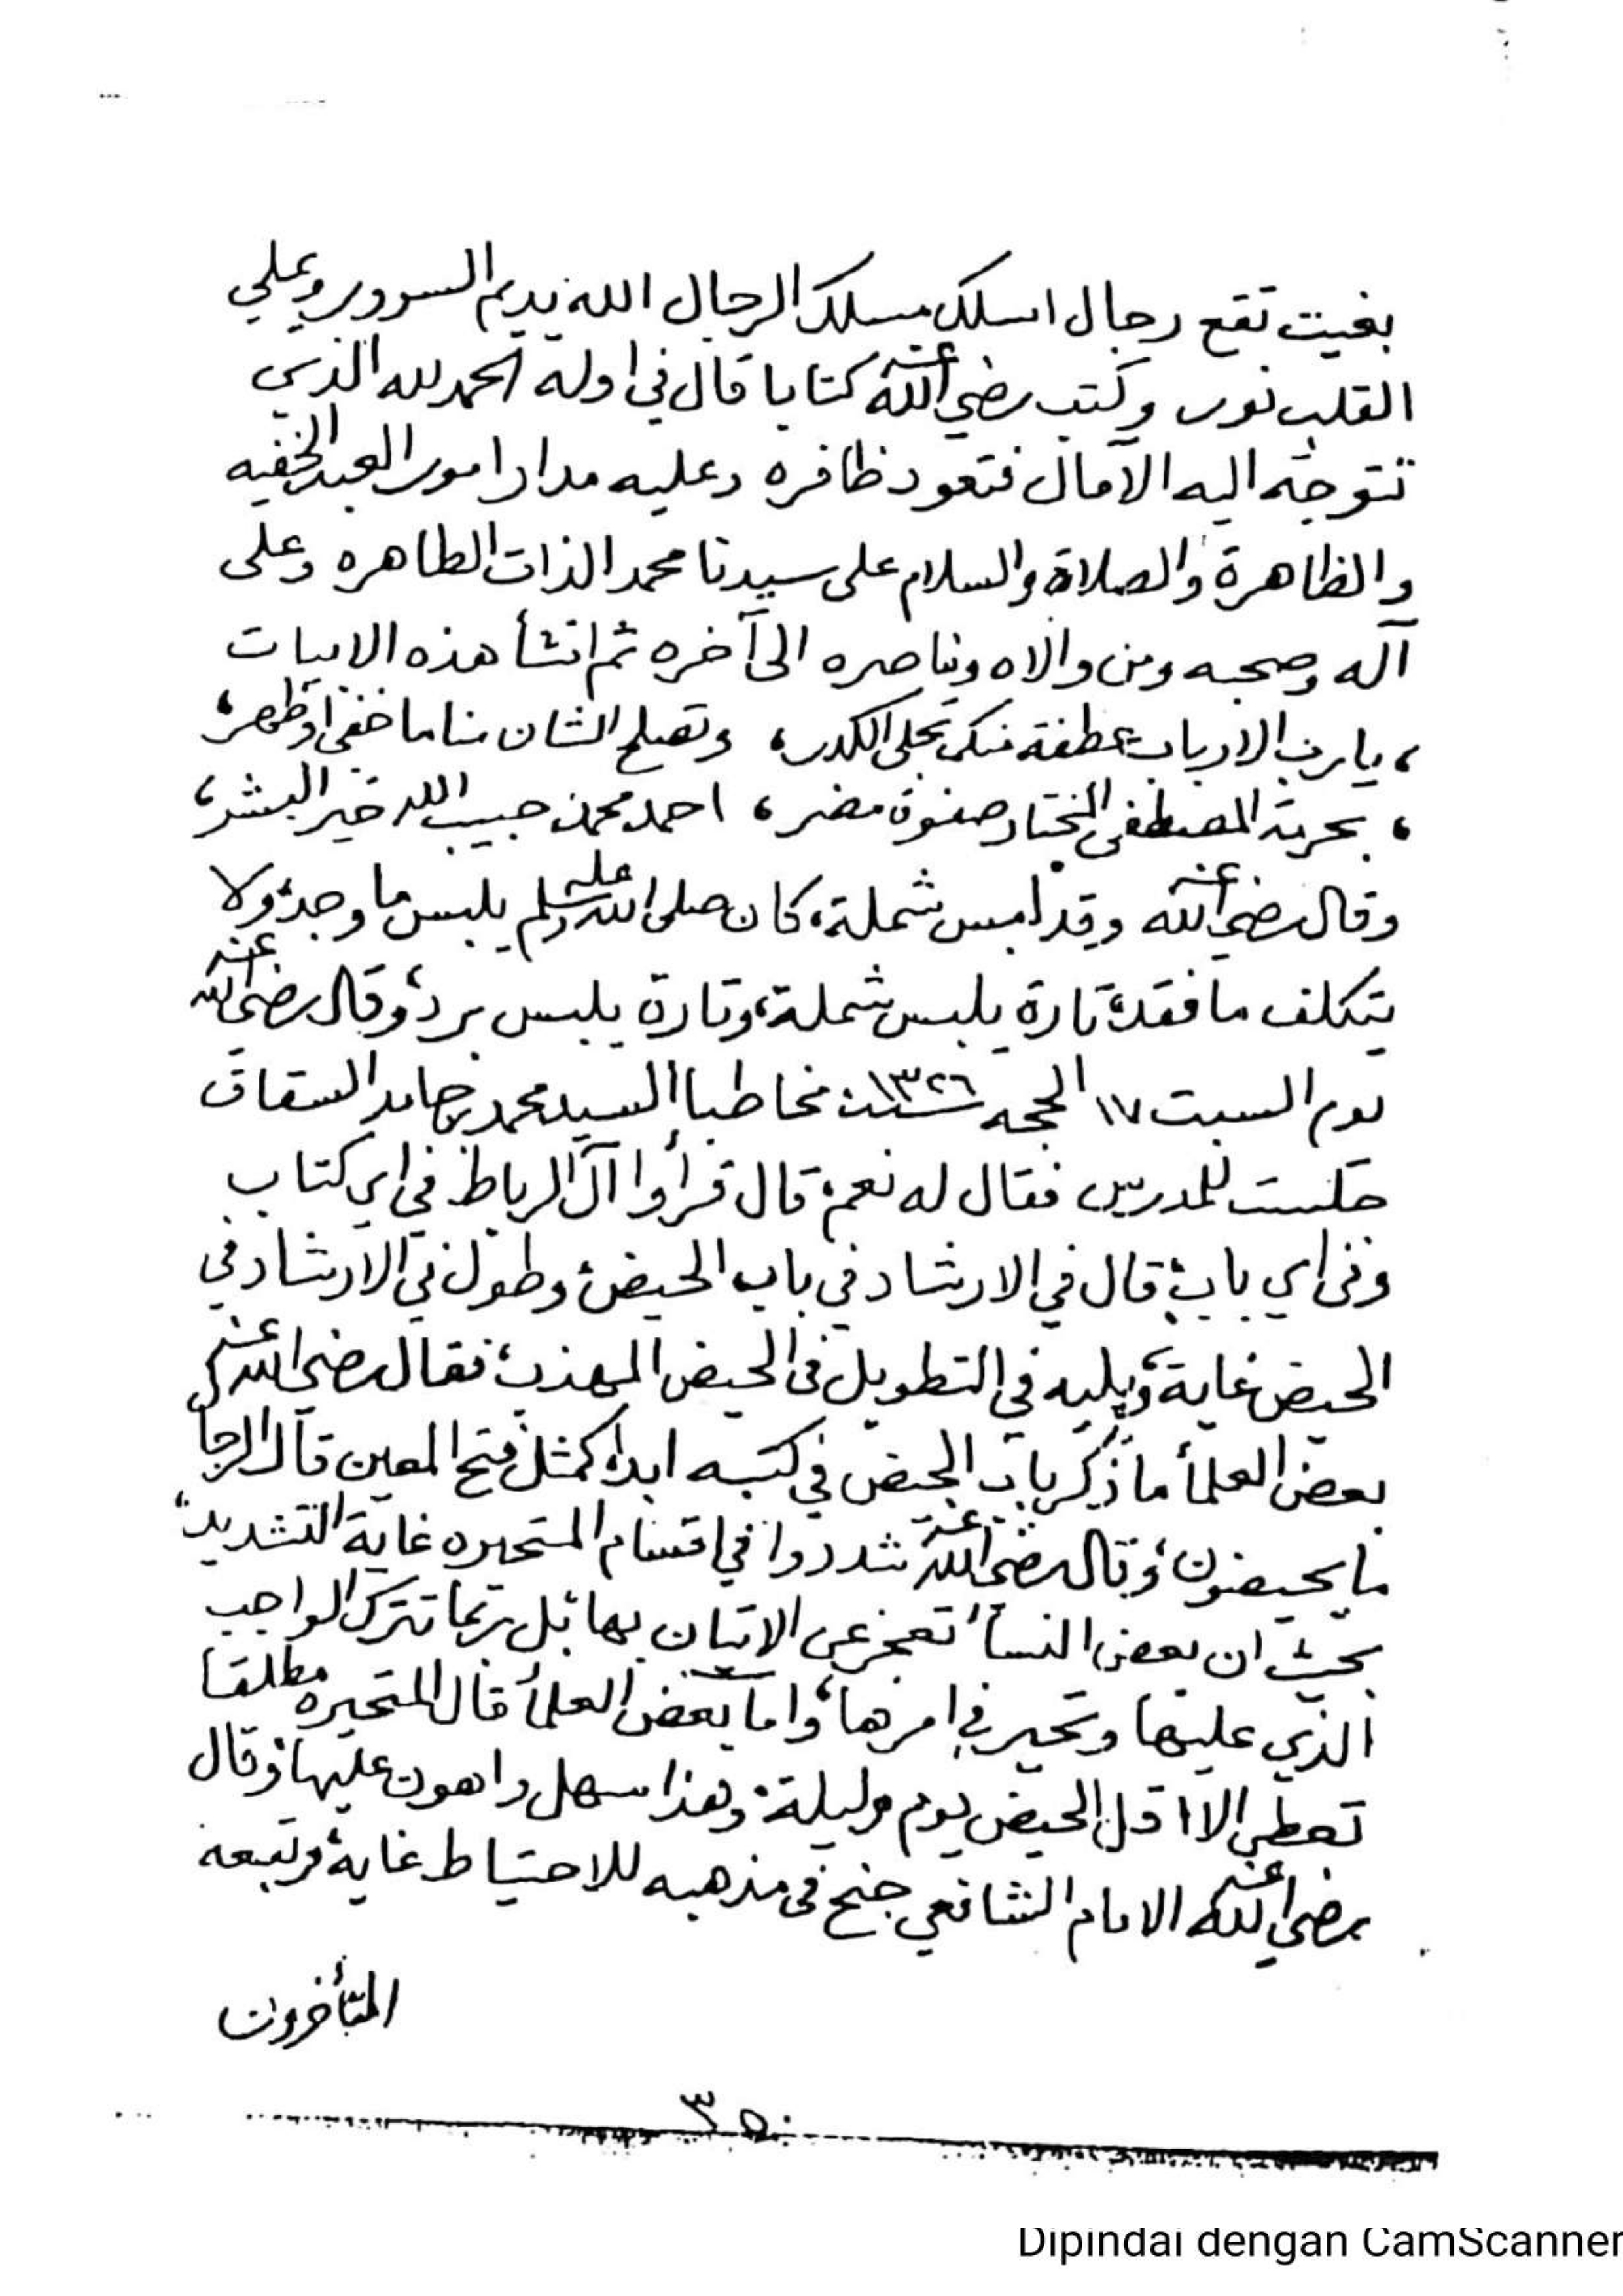 بغيت تقع رجال اسلك مسلك الرجال الله يديم السرور ويملي
القلب نور وكتب رضي الله عنه كتابا قال في اوله الحمد لله الذي
تتوجه اليه الآمال فتعود ظافره وعليه مدار امور العبد الخفيه
والظاهرة والصلاة والسلام على سيدنا محمد الذات الطاهره وعلى
آله وصحبه ومن والاه وناصره الى آخره ثم انشأ هذه الابيات
، يارب الارباب عطفة منك تجلي الكدر، وتصلح الشان منا ما خفى او ظهر،
، بحرمة المصطفى المختار صفوة مضر، احمد محمد حبيب الله خير البشر،
وقال رضي الله عنه وقد لبس شملة، كان صلى الله عليه وسلم يلبس ما وجد، ولا
يتكلف ما فقد، تارة يلبس شملة، وتارة يلبس برد، وقال رضي الله عنه
يوم السبت ١٧ الحجه سنة ١٣٢٦ مخاطبا السيد محمد بن حامد السقاف
جلست للمدرس فقال له نعم، قال قرأوا آل الرباط في اي كتاب
وفي اي باب، قال في الارشاد في باب الحيض، وطول في الارشاد في
الحيض غاية، ويليه في التطويل في الحيض المهذب، فقال رضي الله عنه
بعض العلمأ ما ذكر باب الحيض في كتبه ابدا، كمثل فتح المعين قال الرجا
ما يحيضون، وقال رضي الله عنه شددوا في اقسام المتحيره غاية التشديد،
بحيث ان بعض النسأ تعجز عن الاتيان بها بل ربما تترك الواجب
الذي عليها وتحير في امرها، واما بعض العلمأ قال المتحيره مطلقا
تعطى الا اقل الحيض يوم وليلة، وهذا سهل واهون عليها، وقال
رضي الله عنه الامام الشافعي جنح في مذهبه للاحتياط غاية، وتبعه
المتأخرون
٣٥
Dipindai dengan CamScanner